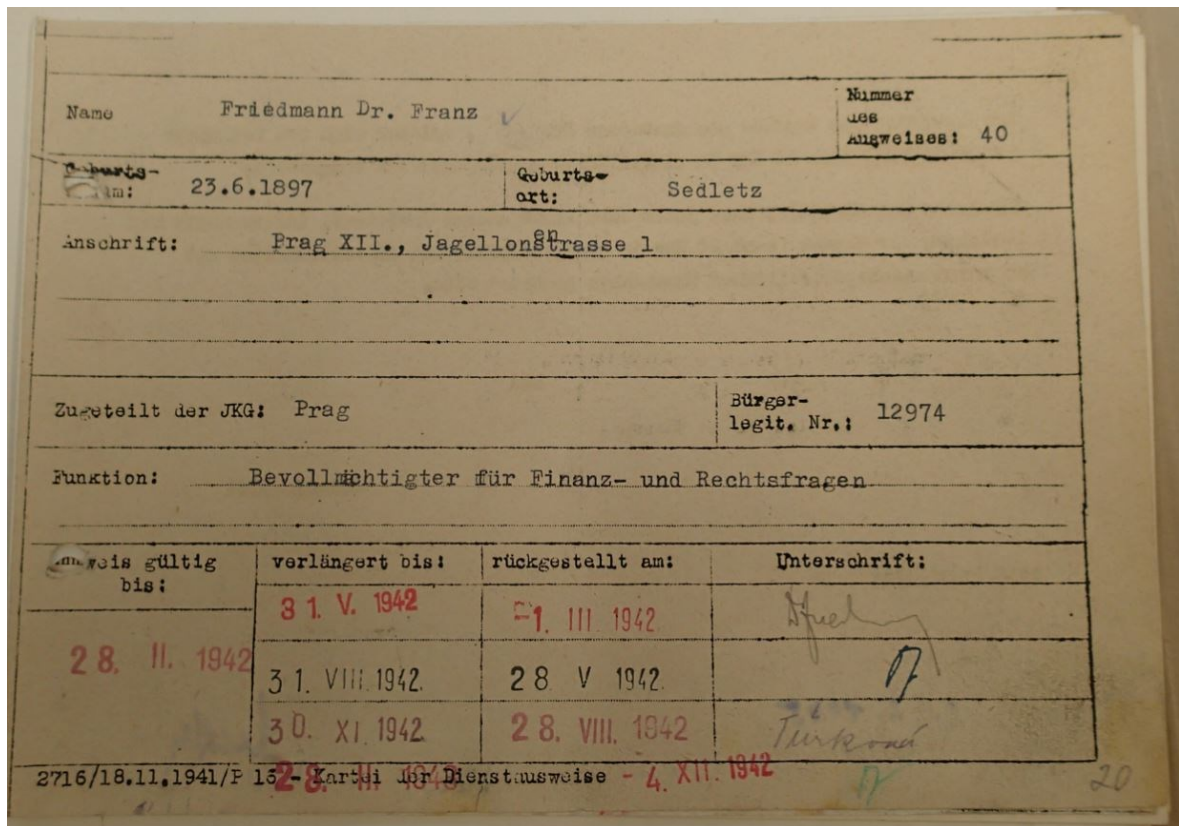 Name Friedmann Dr. Franz
Nummer
des
Ausweises: 40
Geburts-
23.6.1897
Geburts-
ort: Sedletz
Anschrift: Prag XII., Jagellonenstrasse 1
Zugeteilt der JKG: Prag
Bürger-
legit. Nr.: 12974
Funktion: Bevollmächtigter für Finanz- und Rechtsfragen
gültig
bis:
verlängert bis:
rückgestellt am:
Unterschrift:
28. II. 1942
31. V. 1942
-1. III 1942
31. VIII. 1942.
28 V 1942.
30. XI. 1942
28. VIII. 1942
2716/18.11.1941/P 13 - Kartei der Dienstausweise
- 4. XII. 1942
20